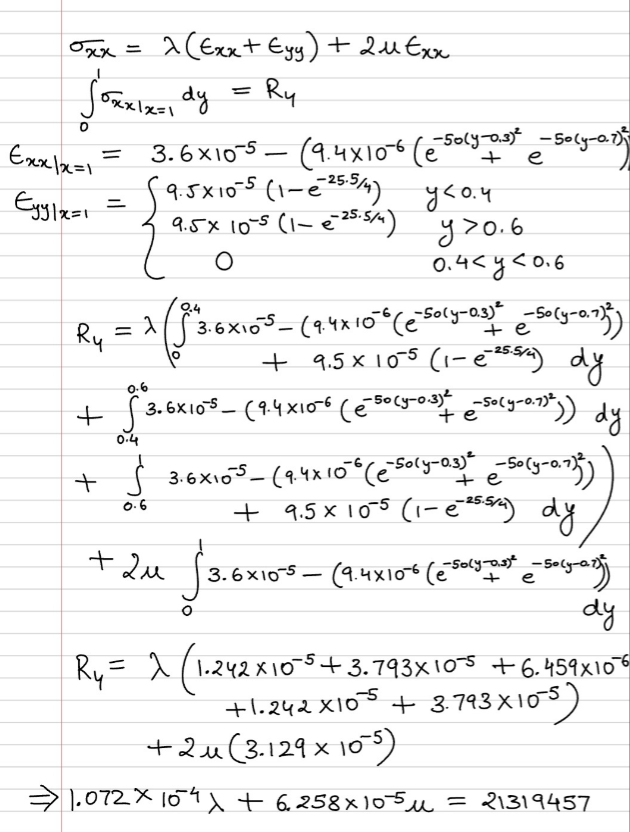 σxx = λ(Exx + Eyy) + 2μExx
∫₀¹ σxx|x=1 dy = R4
Exx|x=1 = 3.6×10⁻⁵ − (9.4×10⁻⁶ (e^(-50(y-0.3)²) + e^(-50(y-0.7)²))
Eyy|x=1 = { 9.5×10⁻⁵ (1−e^(-25.5/4)) y<0.4
9.5×10⁻⁵ (1−e^(-25.5/4)) y>0.6
0 0.4<y<0.6
R4 = λ(∫₀^0.4 3.6×10⁻⁵ − (9.4×10⁻⁶(e^(-50(y-0.3)²) + e^(-50(y-0.7)²))
+ 9.5×10⁻⁵ (1−e^(-25.5/4)) dy
+ ∫_0.4^0.6 3.6×10⁻⁵ − (9.4×10⁻⁶ (e^(-50(y-0.3)²) + e^(-50(y-0.7)²)) dy
+ ∫_0.6^1 3.6×10⁻⁵ − (9.4×10⁻⁶(e^(-50(y-0.3)²) + e^(-50(y-0.7)²))
+ 9.5×10⁻⁵ (1−e^(-25.5/4)) dy )
+ 2μ ∫₀¹ 3.6×10⁻⁵ − (9.4×10⁻⁶ (e^(-50(y-0.3)²) + e^(-50(y-0.7)²))
dy
R4 = λ (1.242×10⁻⁵ + 3.793×10⁻⁵ + 6.459×10⁻⁶
+1.242×10⁻⁵ + 3.793×10⁻⁵)
+ 2μ(3.129×10⁻⁵)
⇒ 1.072×10⁻⁴λ + 6.258×10⁻⁵μ = 21319457